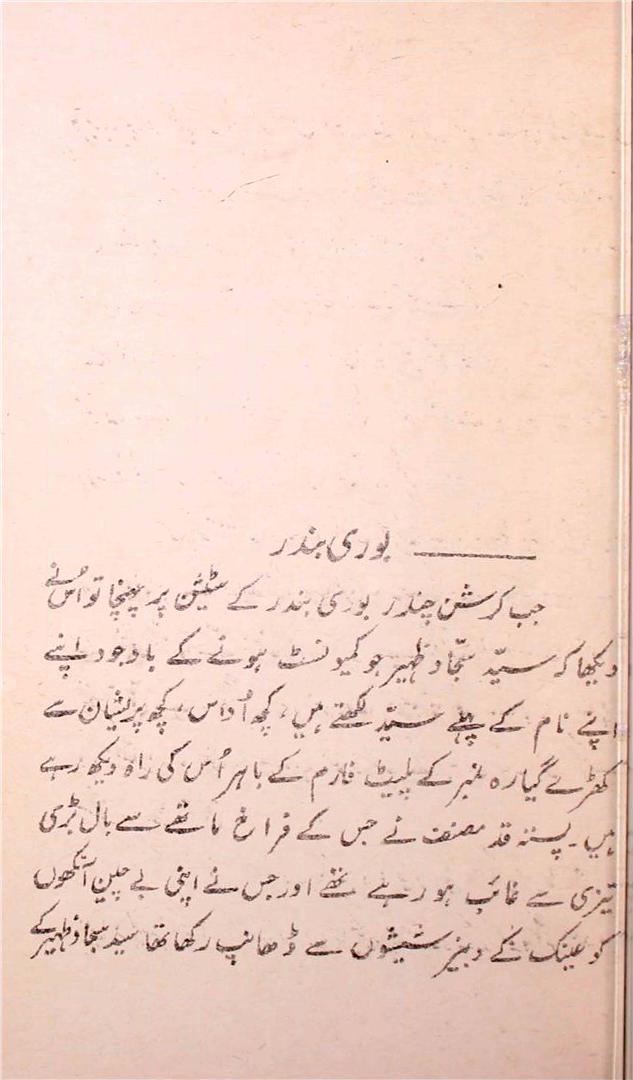 بوری بندر
جب کرشن چندر بوری بندر کے سٹیشن پر پہنچا تو اُس نے
دیکھا کہ سیّد سجّاد ظہیر جو کمیونسٹ ہونے کے باوجود اپنے
اپنے نام کے پہلے سیّد لکھتے ہیں، کچھ اُداس، کچھ پریشان سے
کھڑے گیارہ نمبر کے پلیٹ فارم کے باہر اُس کی راہ دیکھ رہے
ہیں۔ پستہ قد مصنف نے جس کے فراخ ماتھے سے بال بڑی
تیزی سے غائب ہو رہے تھے اور جس نے اپنی بے چین آنکھوں
کو عینک کے دبیز شیشوں سے ڈھانپ رکھا تھا سید سجاد ظہیر کے